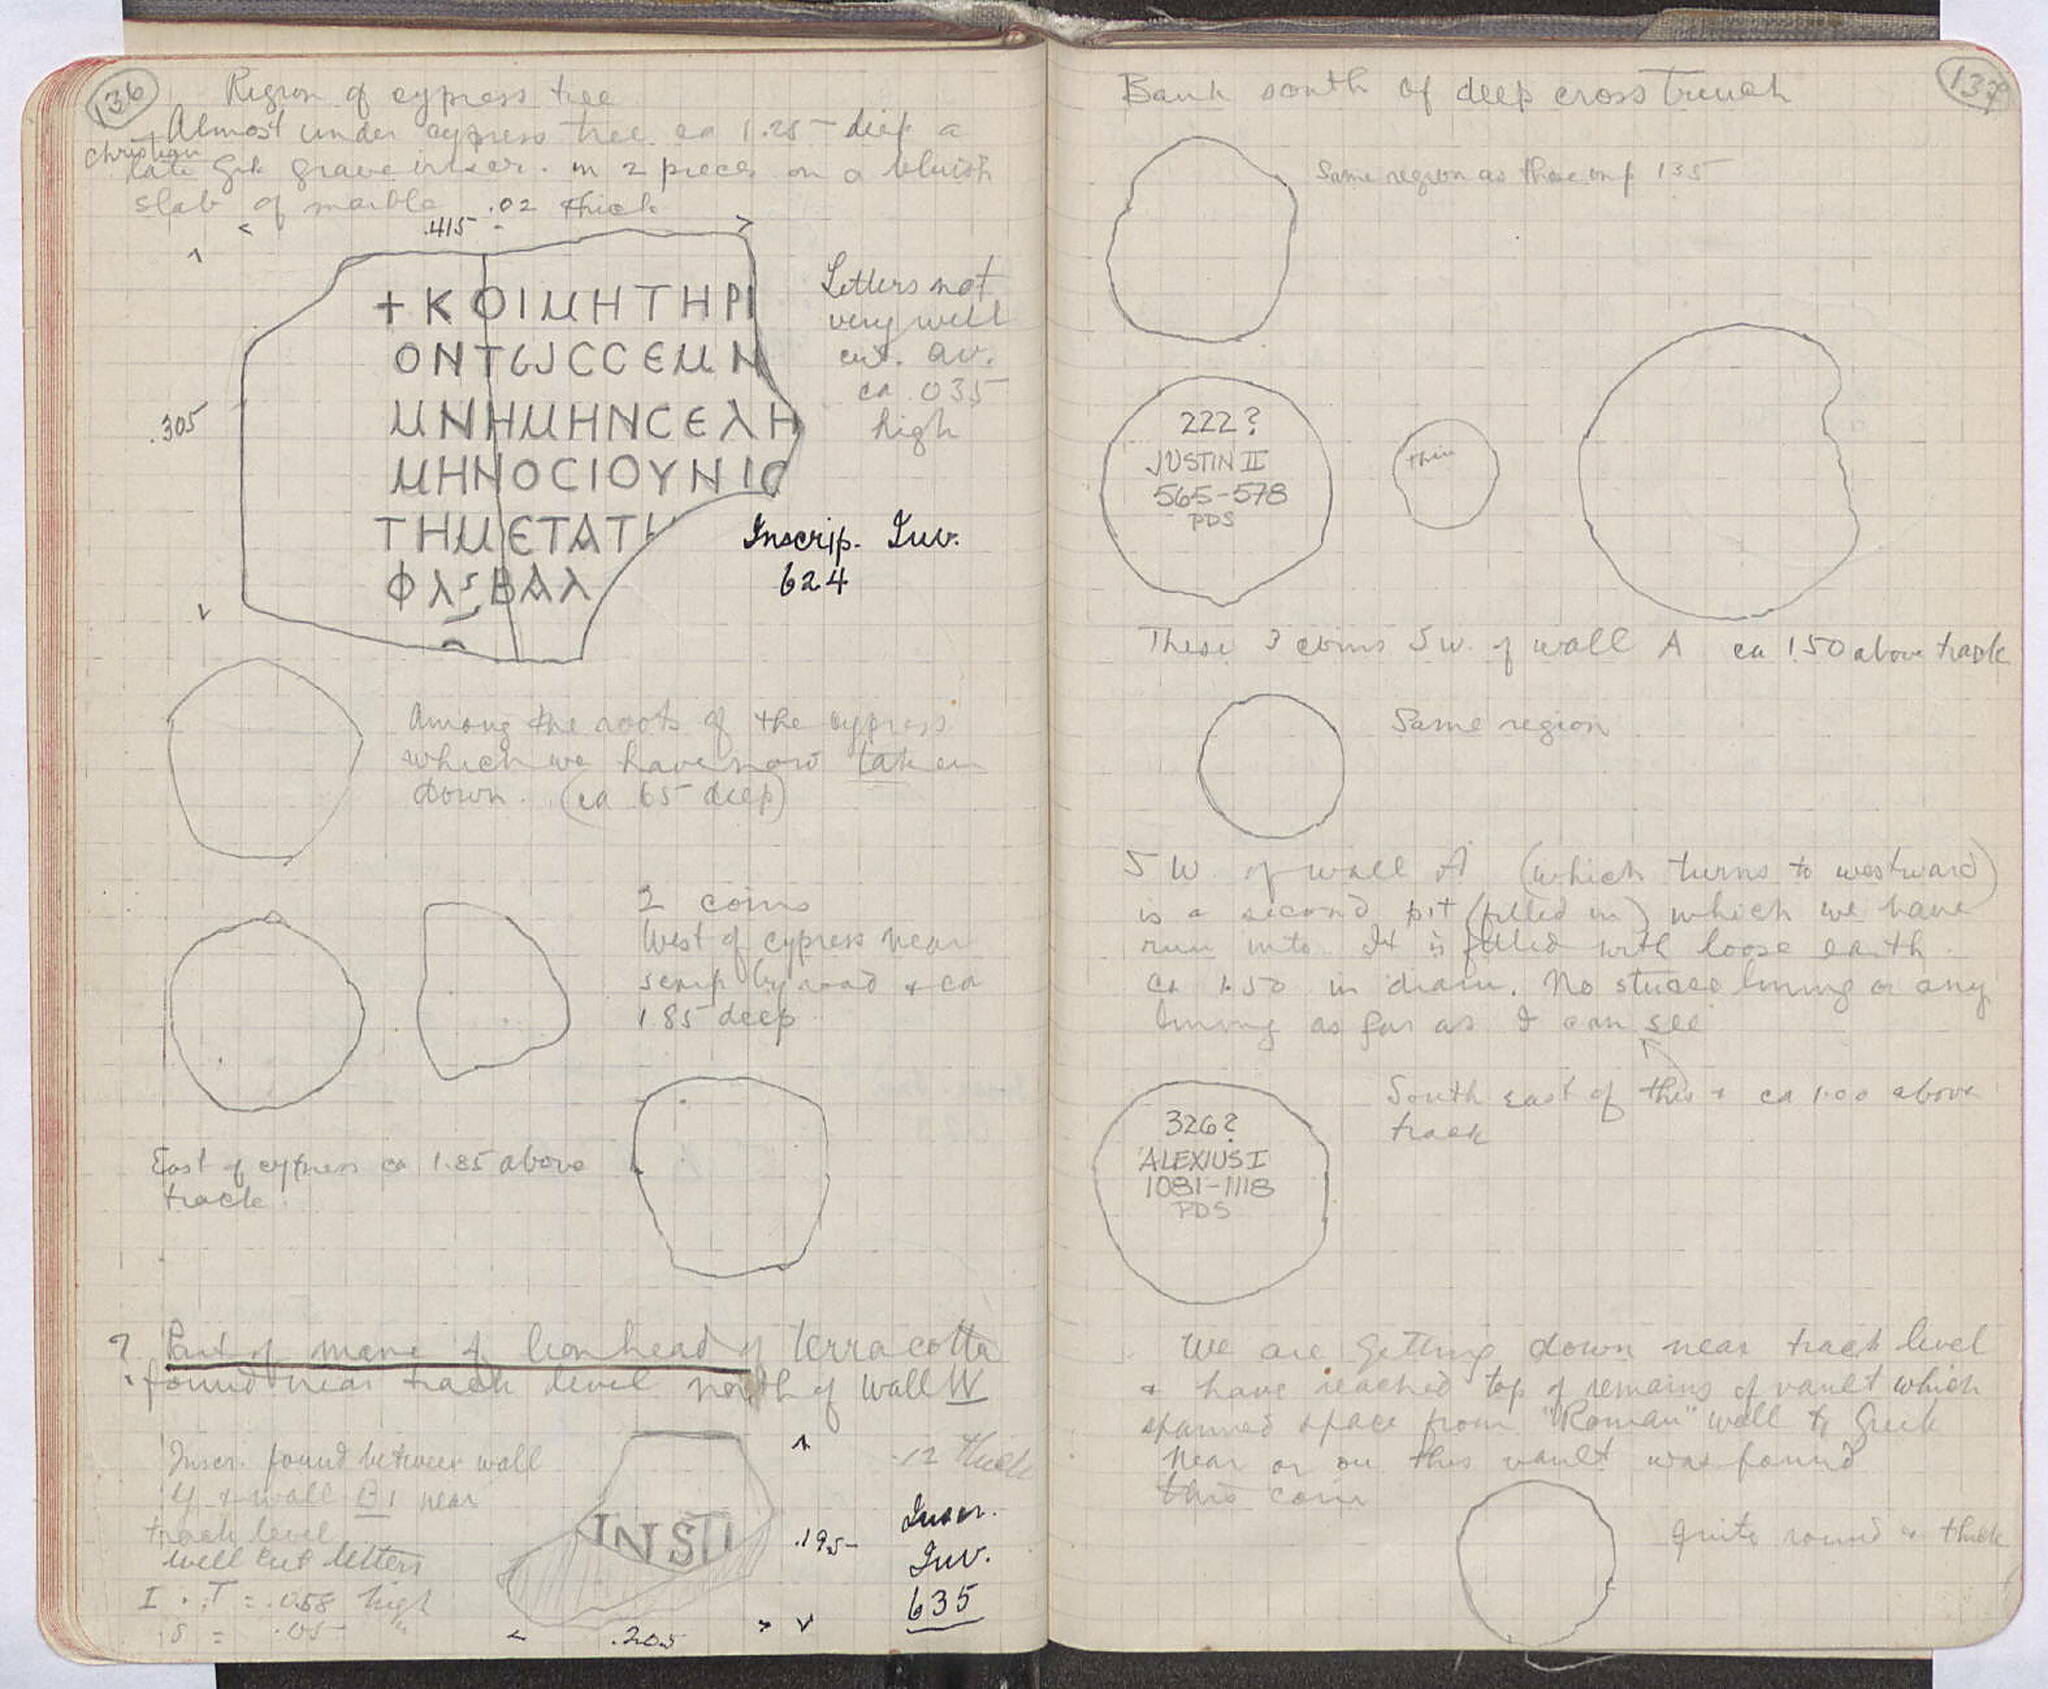 136
Region of cypress tree
Almost under cypress tree ca 1.25 deep a
Christian
late Gk grave inscr. in 2 pieces on a bluish
slab of marble .02 thick
.415
+ΚΟΙΜΗΤΗΡΙ
ΟΝΤωϹϹΕΜΝ
ΜΝΗΜΗΝϹΕΛΗ
ΜΗΝΟϹΙΟΥΝΙΟ
ΤΗΜΕΤΑΤ
ΦΛϛΒΑΛ
.305
Letters not
very well
cut. av.
ca .035
high
Inscrip. Inv.
624
Among the roots of the cypress
which we have now taken
down. (ca 65 deep)
2 coins
West of cypress near
scarp by road & ca
1.85 deep
East of cypress ca 1.85 above
track
? Part of mane of lionhead of terra cotta
found near track level north of wall W
Inscr. found between wall
& wall B1 near
track level
well cut letters
I . T = .058 high
S = .05
INSTI
.195
.205
.12 thick
Inscr.
Inv.
635
137
Bank south of deep cross trench
Same region as those on p 135
222?
JUSTIN II
565-578
PDS
thin
These 3 coins SW. of wall A ca 1.50 above track
Same region
SW of wall A (which turns to westward)
is a second pit (filled in) which we have
run into. It is filled with loose earth.
ca 1.50 in diam. No stucco lining or any
lining as far as I can see
South east of this & ca 1.00 above
track
326?
ALEXIUS I
1081-1118
PDS
We are getting down near track level
& have reached top of remains of vault which
spanned space from "Roman" wall to Greek
Near or on this vault was found
this coin
Quite round & thick